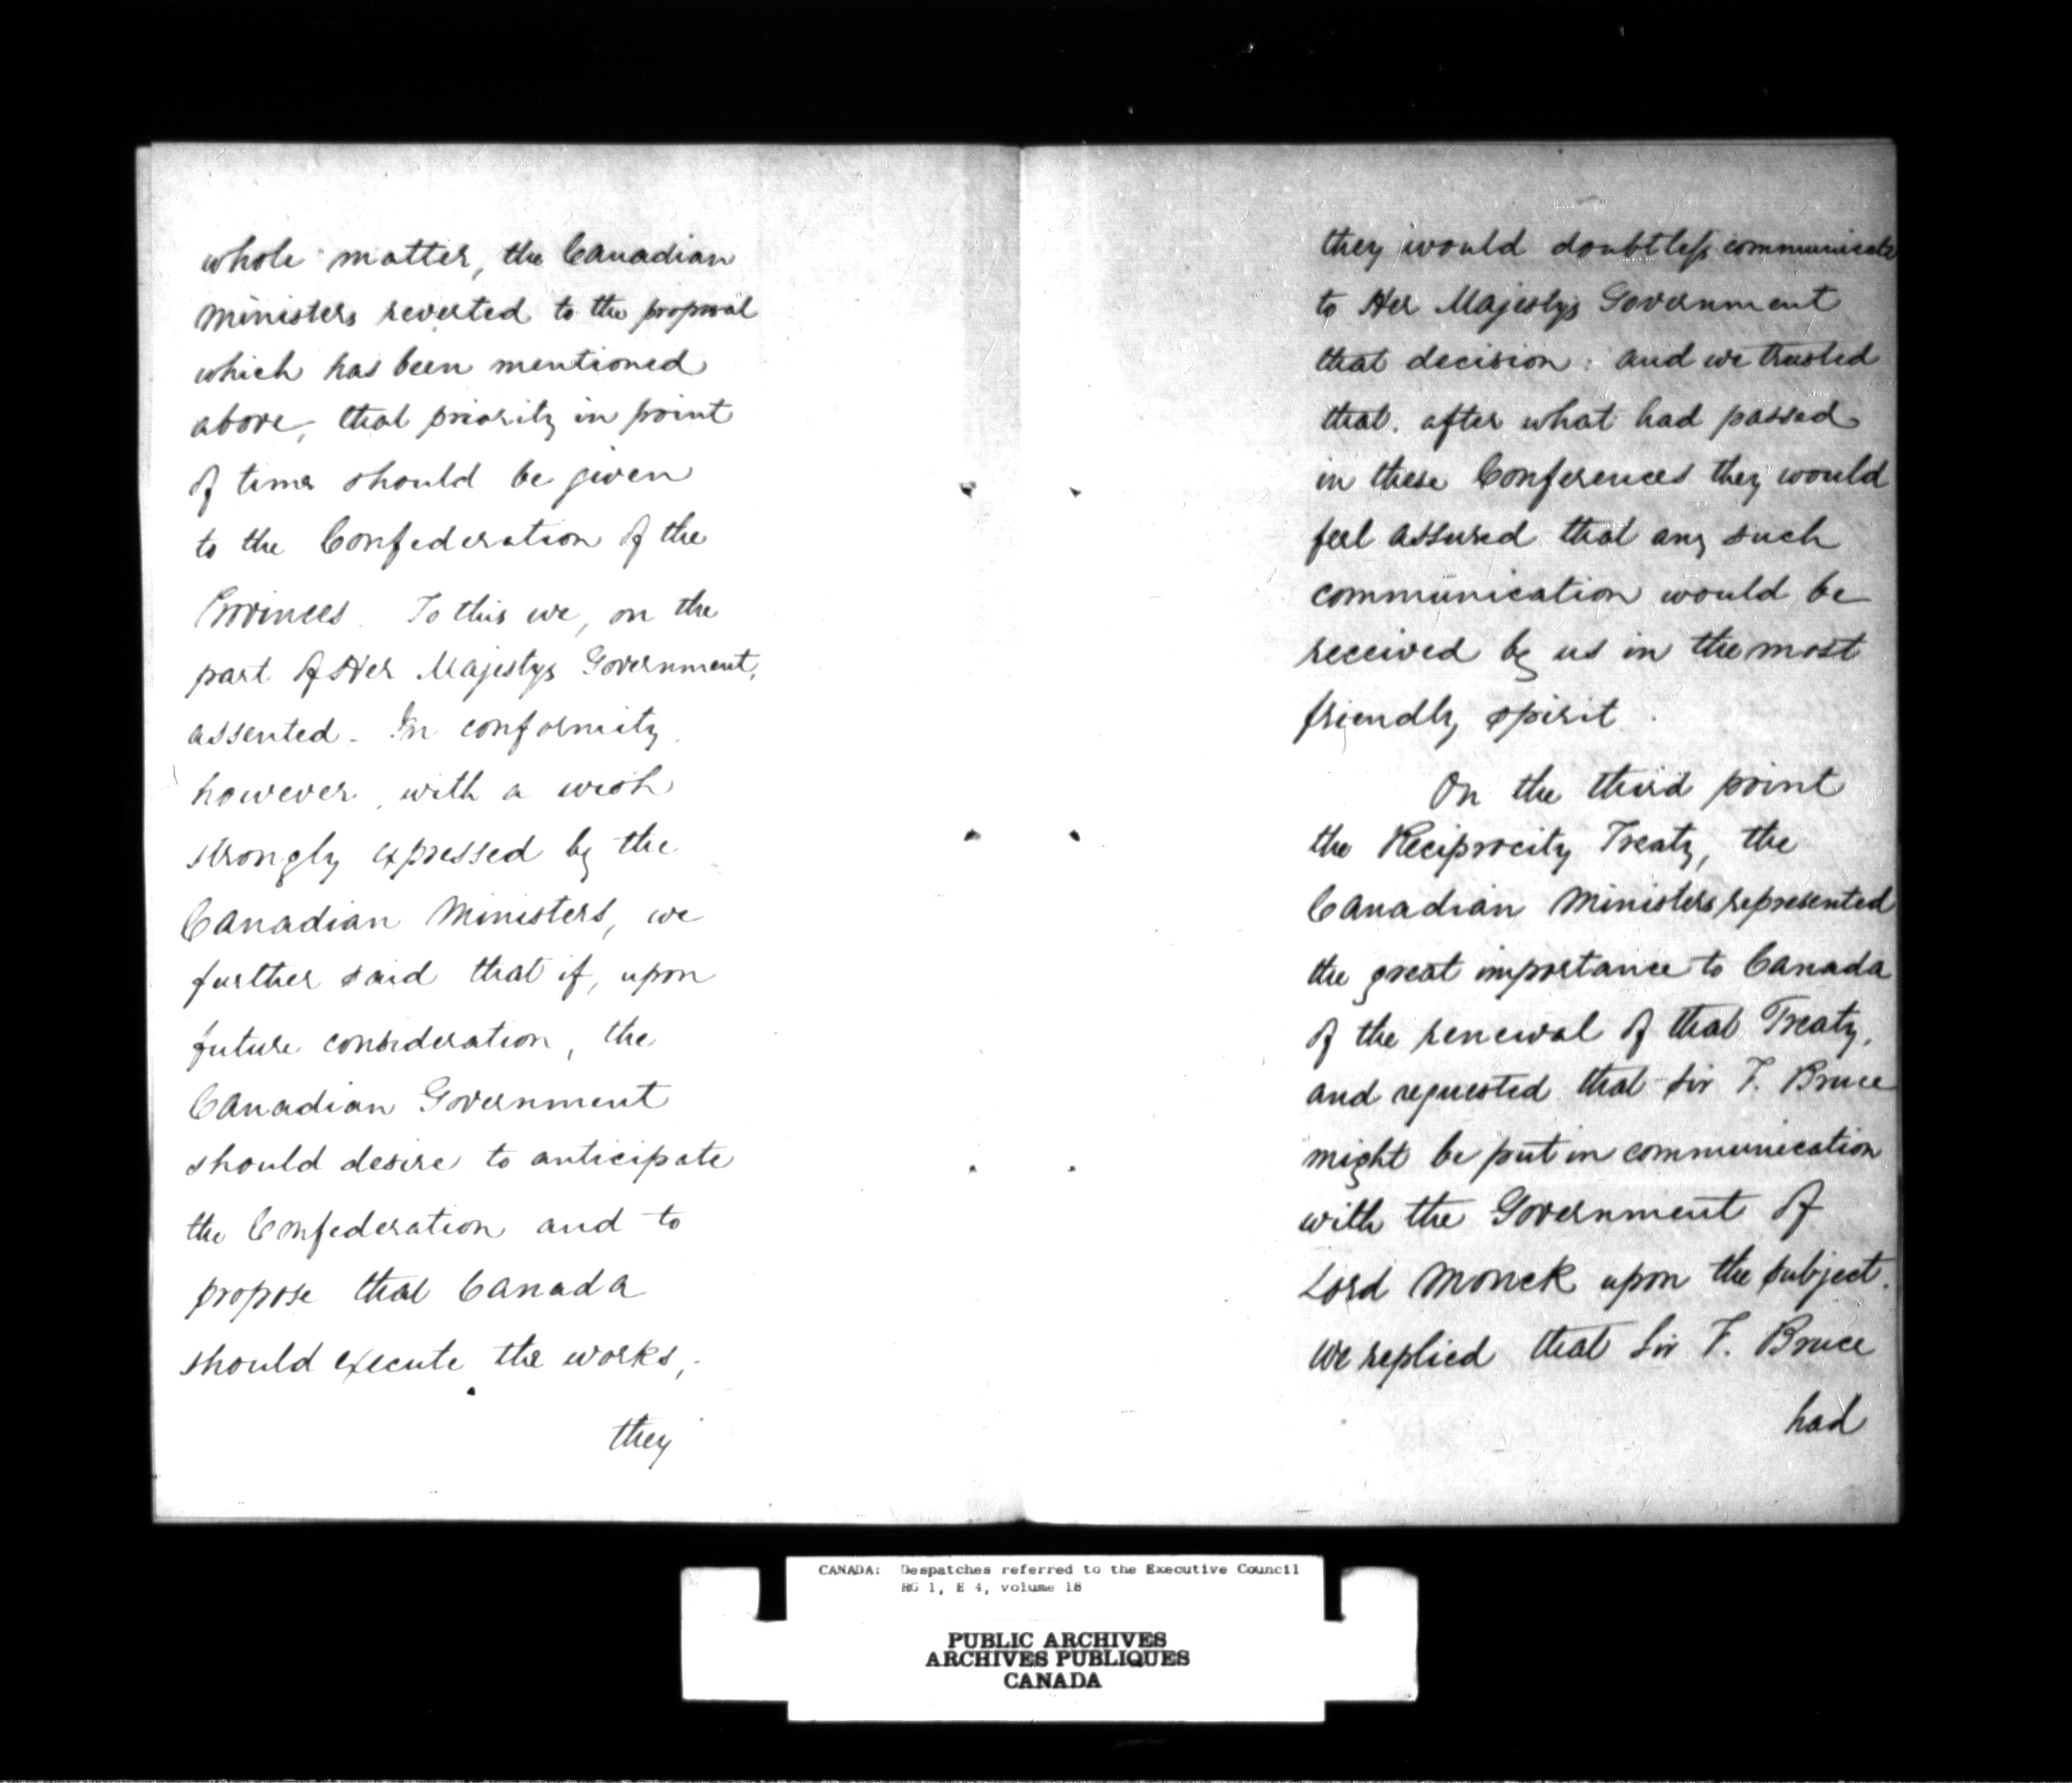 whole matter, the Canadian
Ministers reverted to the proposal
which has been mentioned
above, that priority in point
of time should be given
to the Confederation of the
Provinces. To this we, on the
part of Her Majestys Government,
assented. In conformity
however, with a wish
strongly expressed by the
Canadian Ministers, we
further said that if, upon
future consideration, the
Canadian Government
should desire to anticipate
the Confederation and to
propose that Canada
should execute the works,
they
they would doubtless communicate
to Her Majestys Government
that decision: and we trusted
that. after what had passed
in these Conferences they would
feel assured that any such
communication would be
received by us in the most
friendly spirit.
On the third point
the Reciprocity Treaty, the
Canadian Ministers represented
the great importance to Canada
of the renewal of that Treaty,
and requested that Sir F. Bruce
might be put in communication
with the Government of
Lord Monck upon the subject.
We replied that Sir F. Bruce
had
CANADA: Despatches referred to the Executive Council
RG 1, E 4, volume 18
PUBLIC ARCHIVES
ARCHIVES PUBLIQUES
CANADA